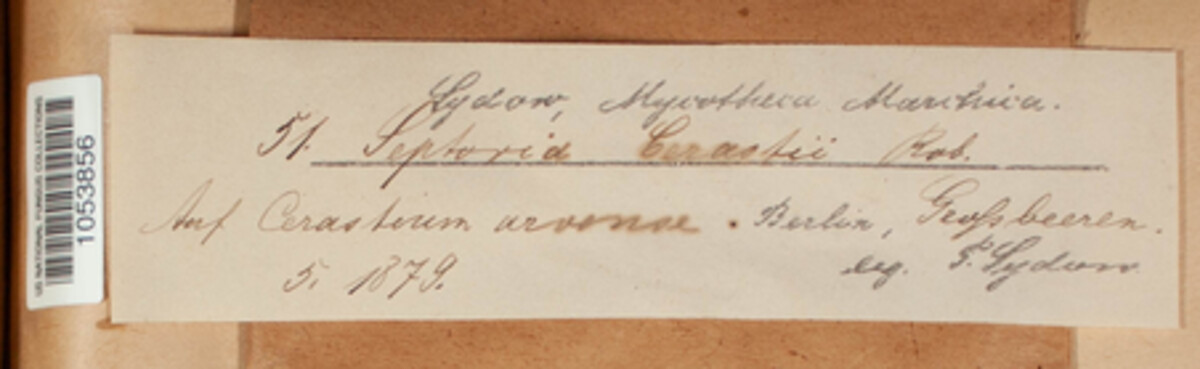 US NATIONAL FUNGUS COLLECTIONS
1053856
Sydow, Mycotheca Marchica.
51. Septoria Cerastii Rob.
Auf Cerastium arvense. Berlin, Großbeeren.
5. 1879.
leg. P. Sydow